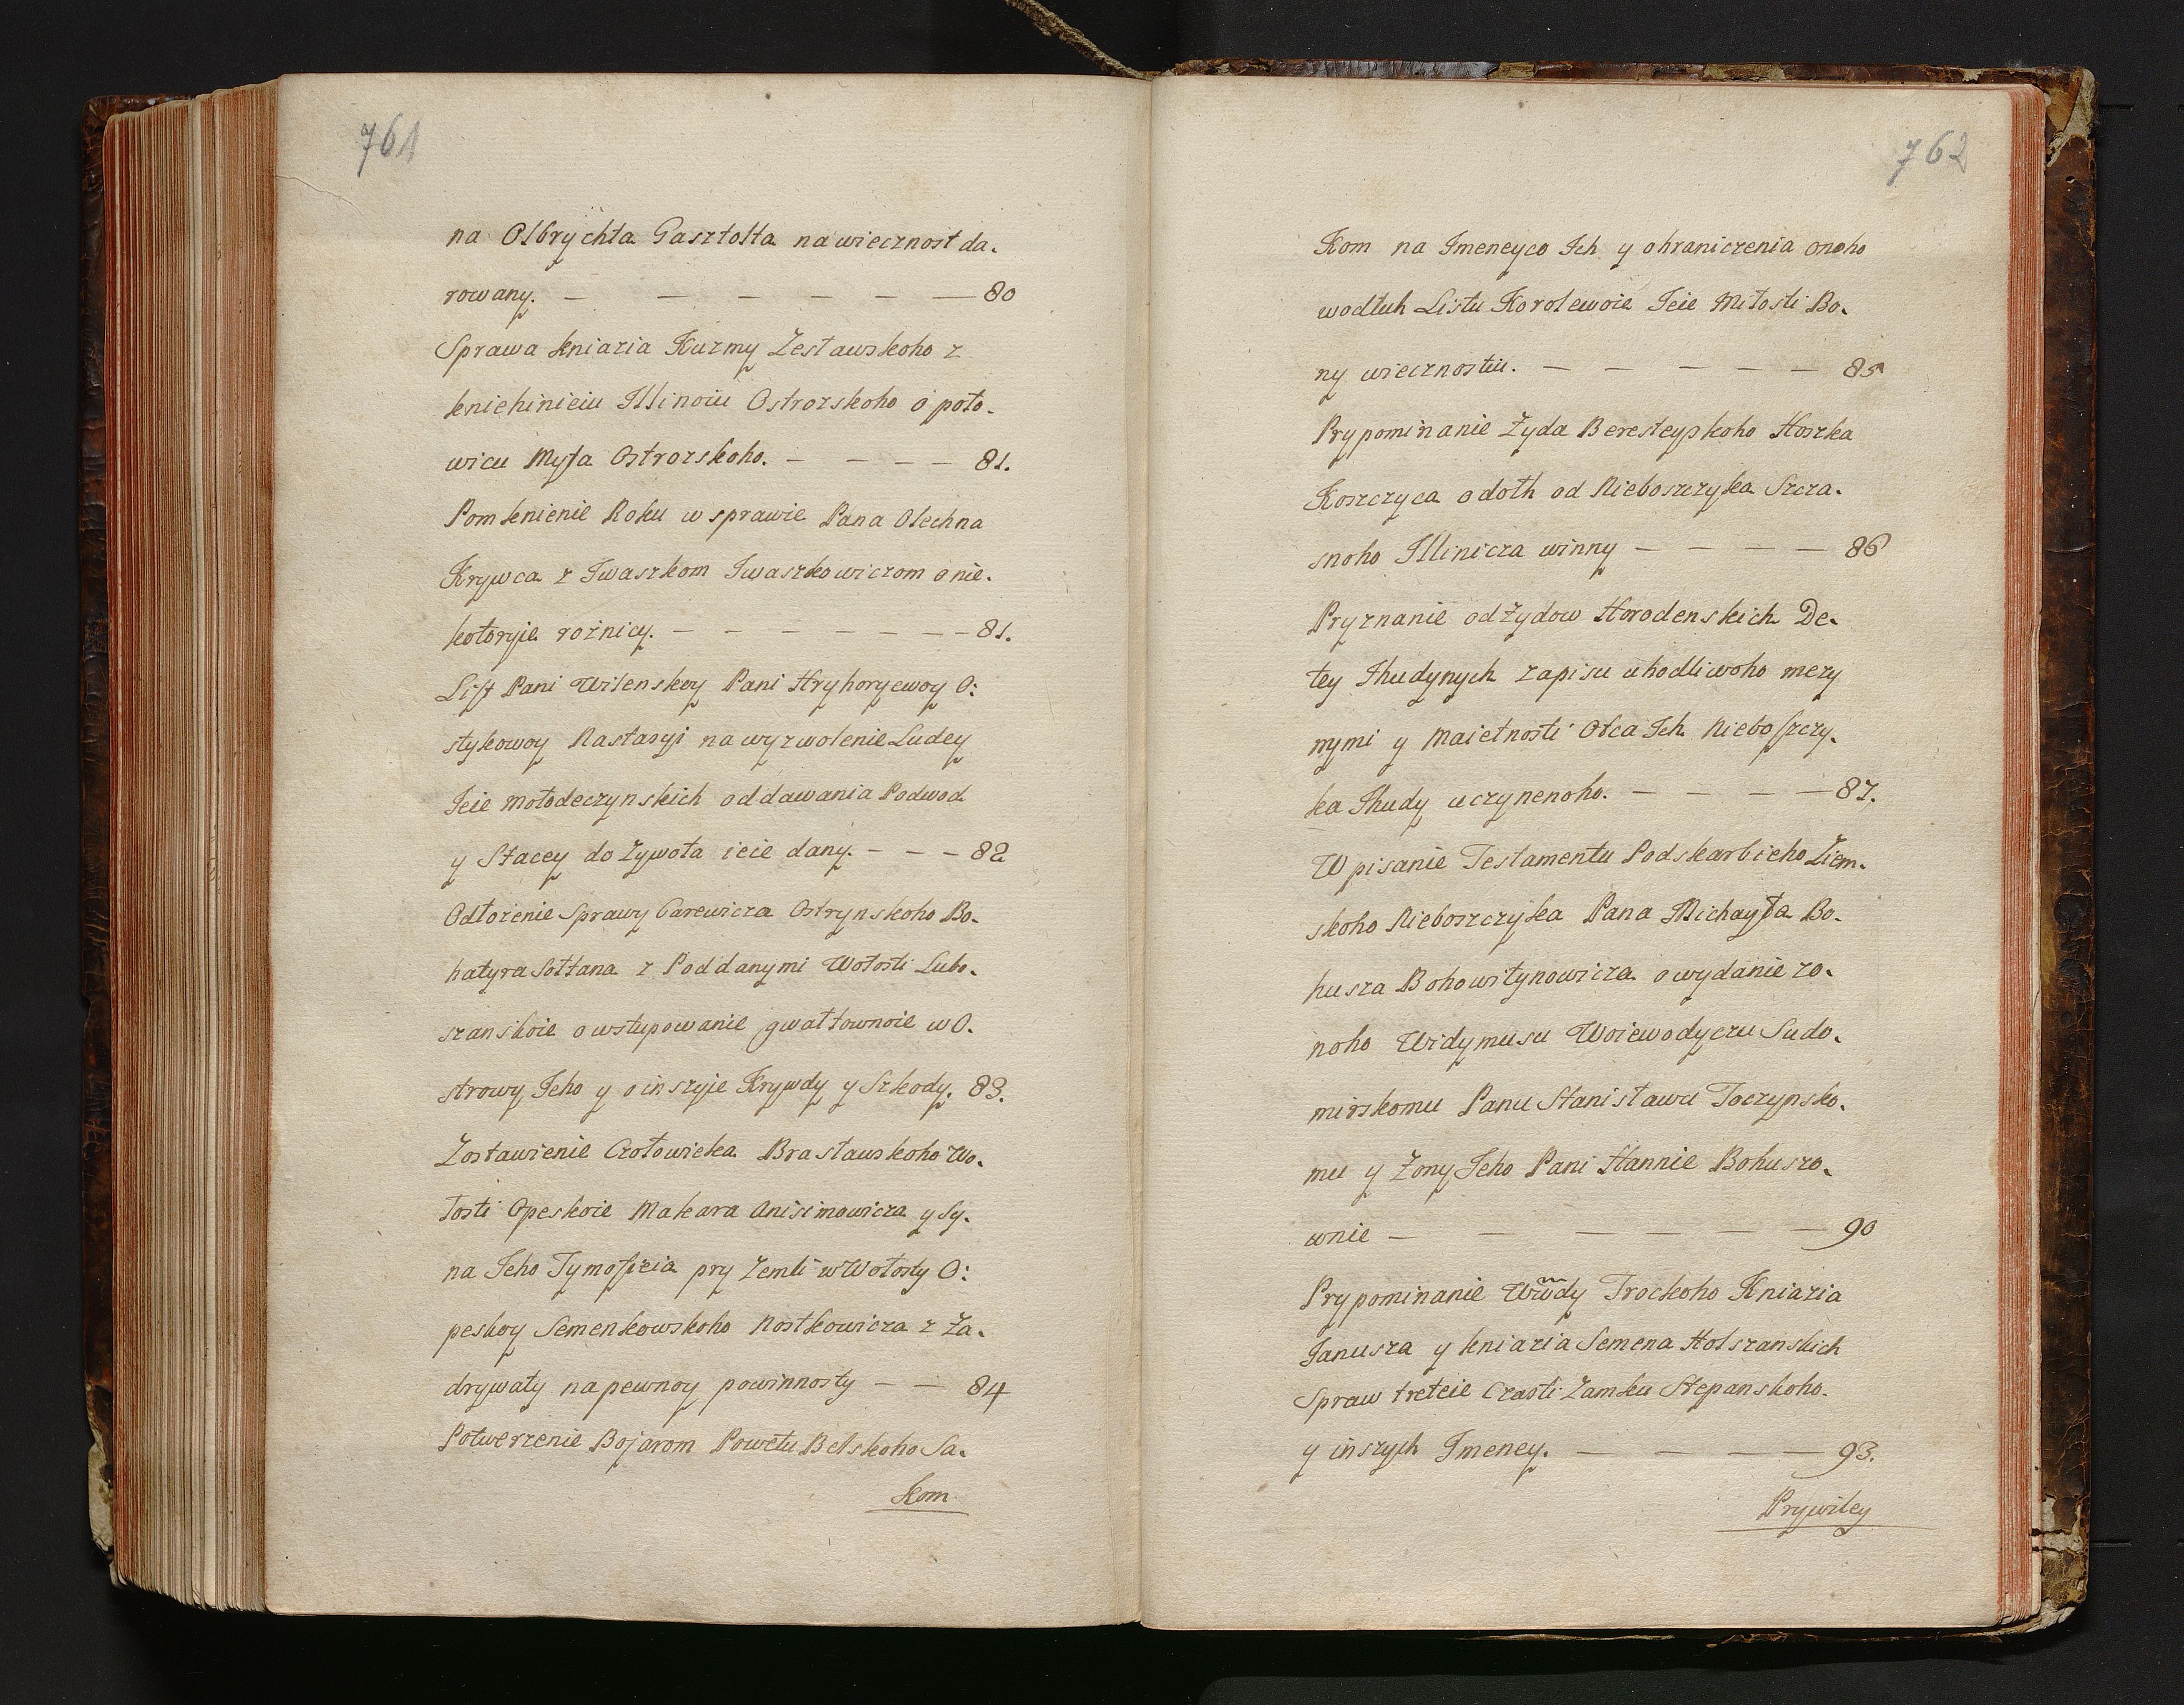 761
na Olbrychta Gasztołta na wiecznost da-
rowany. — — — — — — 80
Sprawa kniazia Kuzmy Zesławskoho z
kniehinieiu Illinoiu Ostrozskoho o poło-
wicu Myta Ostrozskoho. — — — — 81.
Pomknienie Roku w sprawie Pana Olechna
Krywca z Iwaszkom Iwaszkowiczom o nie-
kotoryie rożnicy. — — — — — — 81.
List Pani Wilenskoy Pani Hryhoryewoy O:
stykowoy Nastasyi na wyzwolenie Ludey
Ieie mołodeczynskich od dawania Podwod
y Stacey do Zywota ieie dany. — — — 82
Odłożenie Sprawy Carewicza Ostrynskoho Bo-
hatyra Sołtana z Poddanymi Wołosti Lubo-
szanskoie o wstupowanie gwałtownoie w O-
strowy Jeho y o inszyie Krywdy y Szkody. 83.
Zostawienie Człowieka Brasławskoho Wo-
łosti Opeskoie Makara Anisimowicza y Sy-
na Jeho Tymofieia pry Zemli w Wołosty O:
peskoy Semenkowskoho Nostkowicza z Za-
drywaty na pewnoy powinnosty — — 84
Potwerzenie Bojarom Powetu Belskoho Sa-
kom
762
Kom na Imeneyco Ich y ohraniczenia onoho
wodłuh Listu Korolewoie Ieie Miłosti Bo-
ny wiecznostiu. — — — — — 85
Prypominanie Żyda Beresteyskoho Hoszka
Koszczyca o dołh od Nieboszczyka Szcza-
snoho Illinicza winny — — — — 86
Pryznanie od Żydow Horodenskich De-
tey Ihudynych zapisu uhodliwoho mezy
nymi y Maietnosti Otca Ich Nieboszczy-
ka Ihudy uczynenoho. — — — — 87.
Wpisanie Testamentu Podskarbieho Ziem-
skoho Nieboszczyka Pana Michayła Bo-
husza Bohowitynowicza o wydanie zo-
noho Widymusu Woiewodyczu Sudo-
mirskomu Panu Stanisławu Toczynsko-
mu y Zony Jeho Pani Hannie Bohuszo-
wnie — — — — — — 90
Prypominanie Wwdy Trockoho Kniazia
Janusza y kniazia Semena Holszanskich
Spraw treteie Czasti Zamku Stepanskoho
y inszych Imeney. — — — — 93.
Prywiley